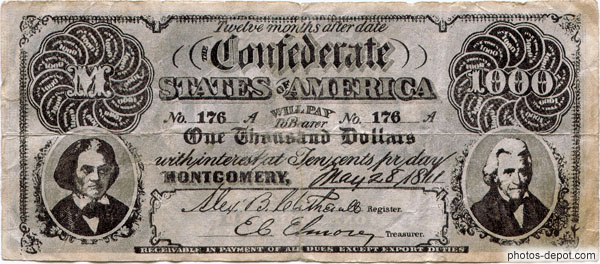 Twelve months after date
THE Confederate
M STATES of AMERICA 1000
No. 176 A WILL PAY to Bearer No. 176 A
One Thousand Dollars
with interest at Ten cents pr day
MONTGOMERY, May 28, 1861
Alex. B. Clitherall Register.
E C Elmore Treasurer.
RECEIVABLE IN PAYMENT OF ALL DUES EXCEPT EXPORT DUTIES
photos-depot.com